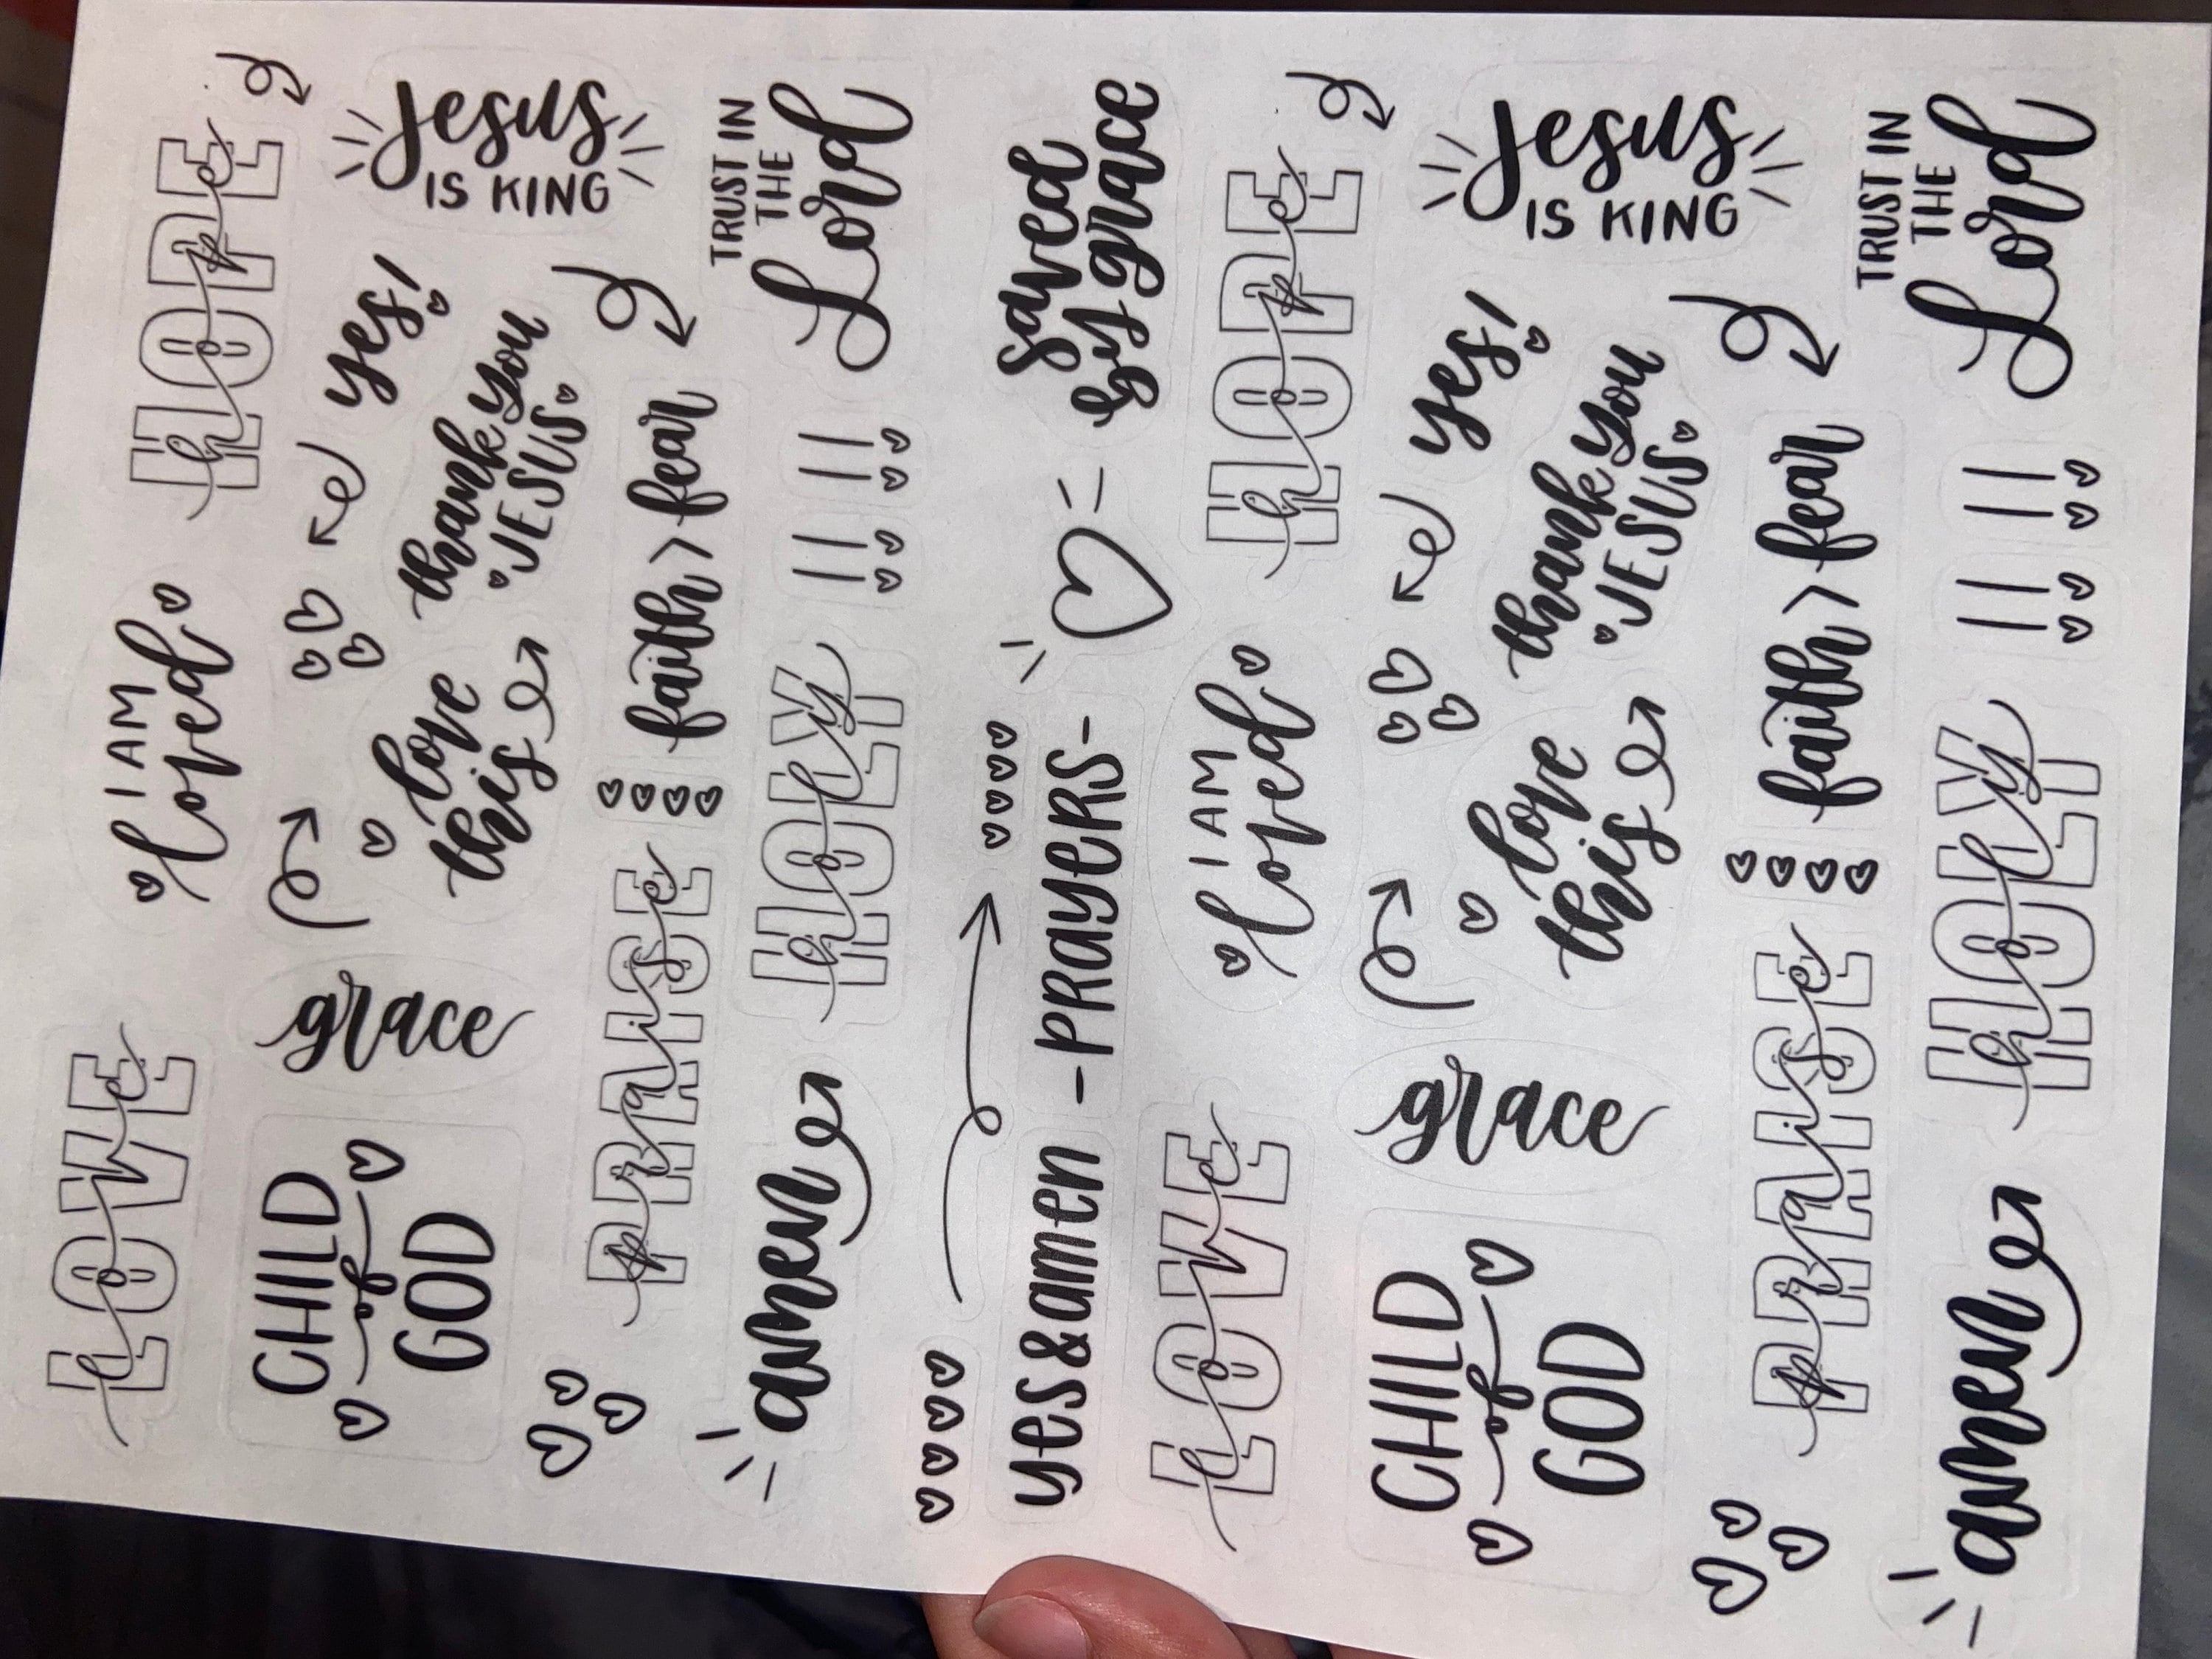 LOVE
love
I AM
loved
HOPE
hope
CHILD
of
GOD
grace
love
this
yes!
thank you
JESUS
Jesus
IS KING
PRAISE
praise
faith > fear
amen
HOLY
holy
!! !!
TRUST IN
THE
Lord
yes & amen
-PRAYERS-
saved
by grace
LOVE
love
I AM
loved
HOPE
hope
CHILD
of
GOD
grace
love
this
yes!
thank you
JESUS
Jesus
IS KING
PRAISE
praise
faith > fear
amen
HOLY
holy
!! !!
TRUST IN
THE
Lord